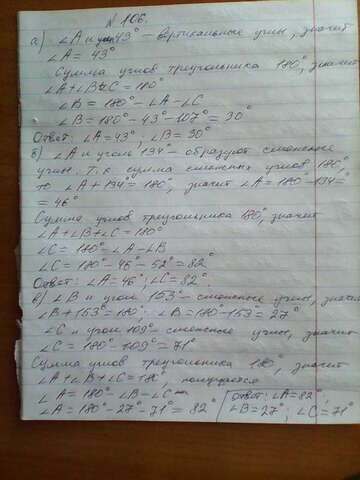 № 106.
а) ∠A и угол 43° – вертикальные углы, значит
∠A = 43°
Сумма углов треугольника 180°, значит
∠A+∠B+∠C = 180°
∠B = 180° - ∠A - ∠C
∠B = 180° - 43° - 107° = 30°
Ответ: ∠A = 43°, ∠B = 30°
б) ∠A и угол 134° – образуют смежные
углы. Т. к. сумма смежных углов 180°
то ∠A + 134 = 180°, значит ∠A = 180° - 134 =
= 46°
Сумма углов треугольника 180°, значит
∠A + ∠B + ∠C = 180°
∠C = 180° - ∠A - ∠B
∠C = 180° - 46° - 52° = 82°
Ответ: ∠A = 46°; ∠C = 82°.
в) ∠B и угол 153° – смежные углы, знач
∠B + 153° = 180°; ∠B = 180 - 153° = 27°
∠C и угол 109° – смежные углы, значит
∠C = 180° - 109° = 71°
Сумма углов треугольника 180°, значит
∠A + ∠B + ∠C = 180°, получается
∠A = 180° - ∠B - ∠C
∠A = 180° - 27° - 71° = 82°
Ответ: ∠A = 82°,
∠B = 27°; ∠C = 71°